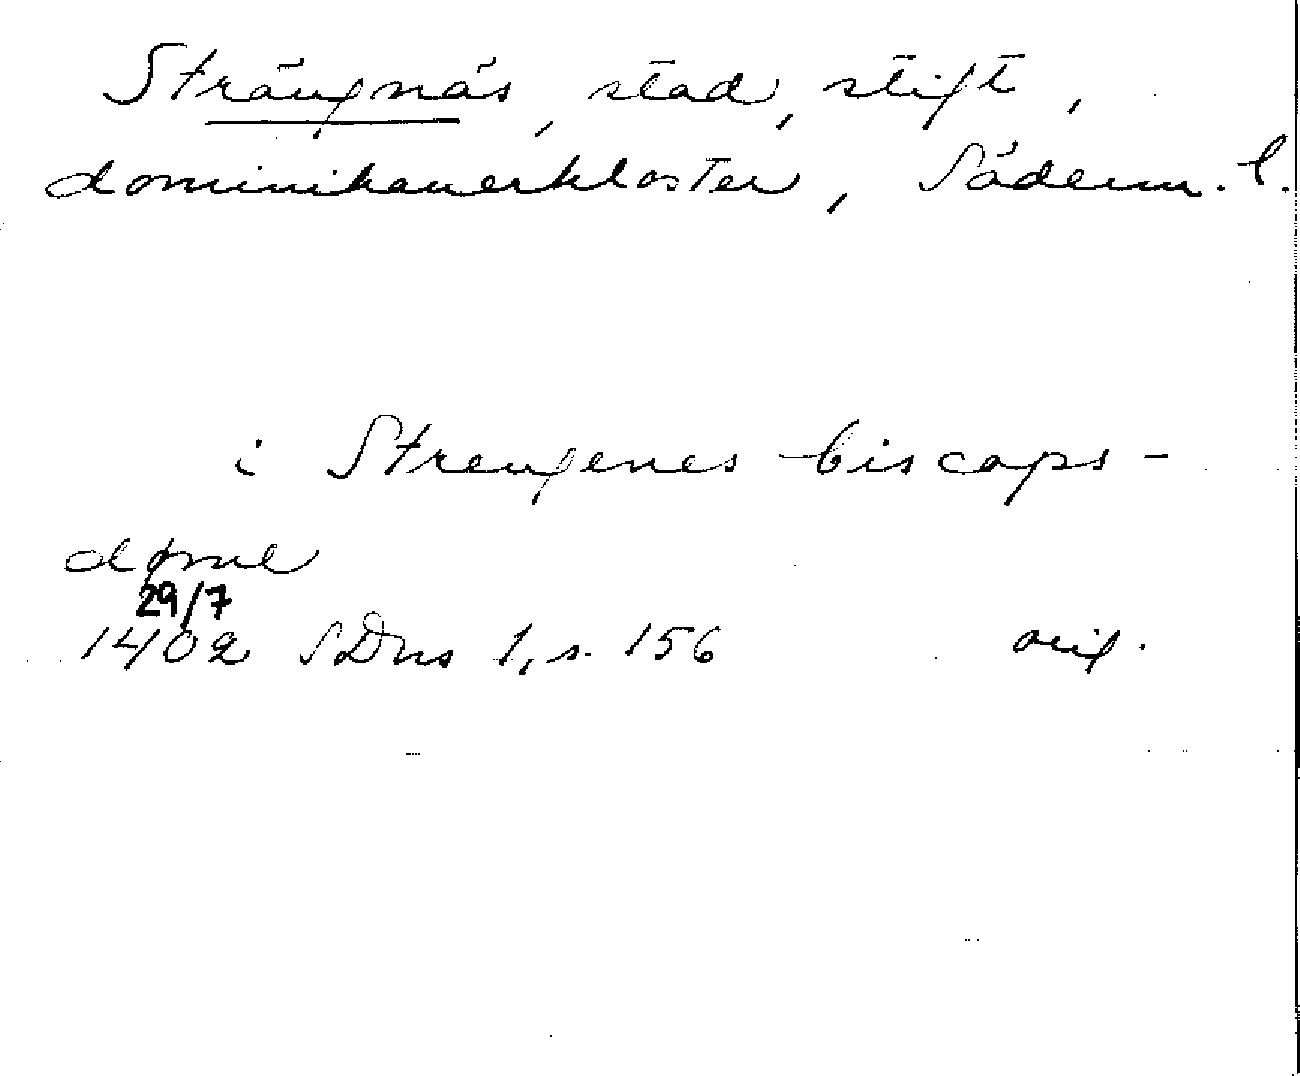 Strängnäs, stad, stift,
dominikanerkloster, Söderm. l.
i Strengenes biscops-
døme
29/7
1402 SDns 1, s. 156 orig.